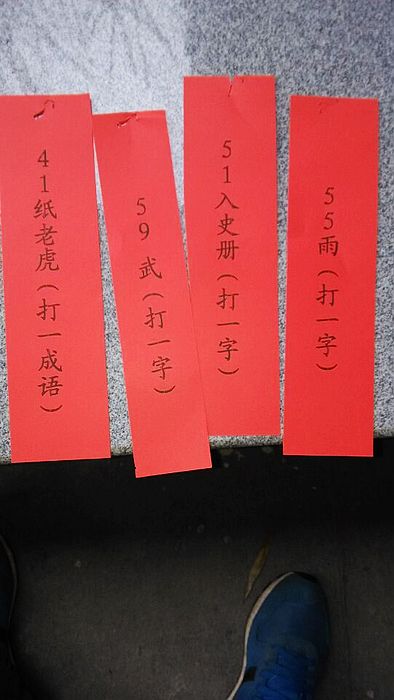 41纸老虎（打一成语）
59 武（打一字）
51入史册（打一字）
55雨（打一字）